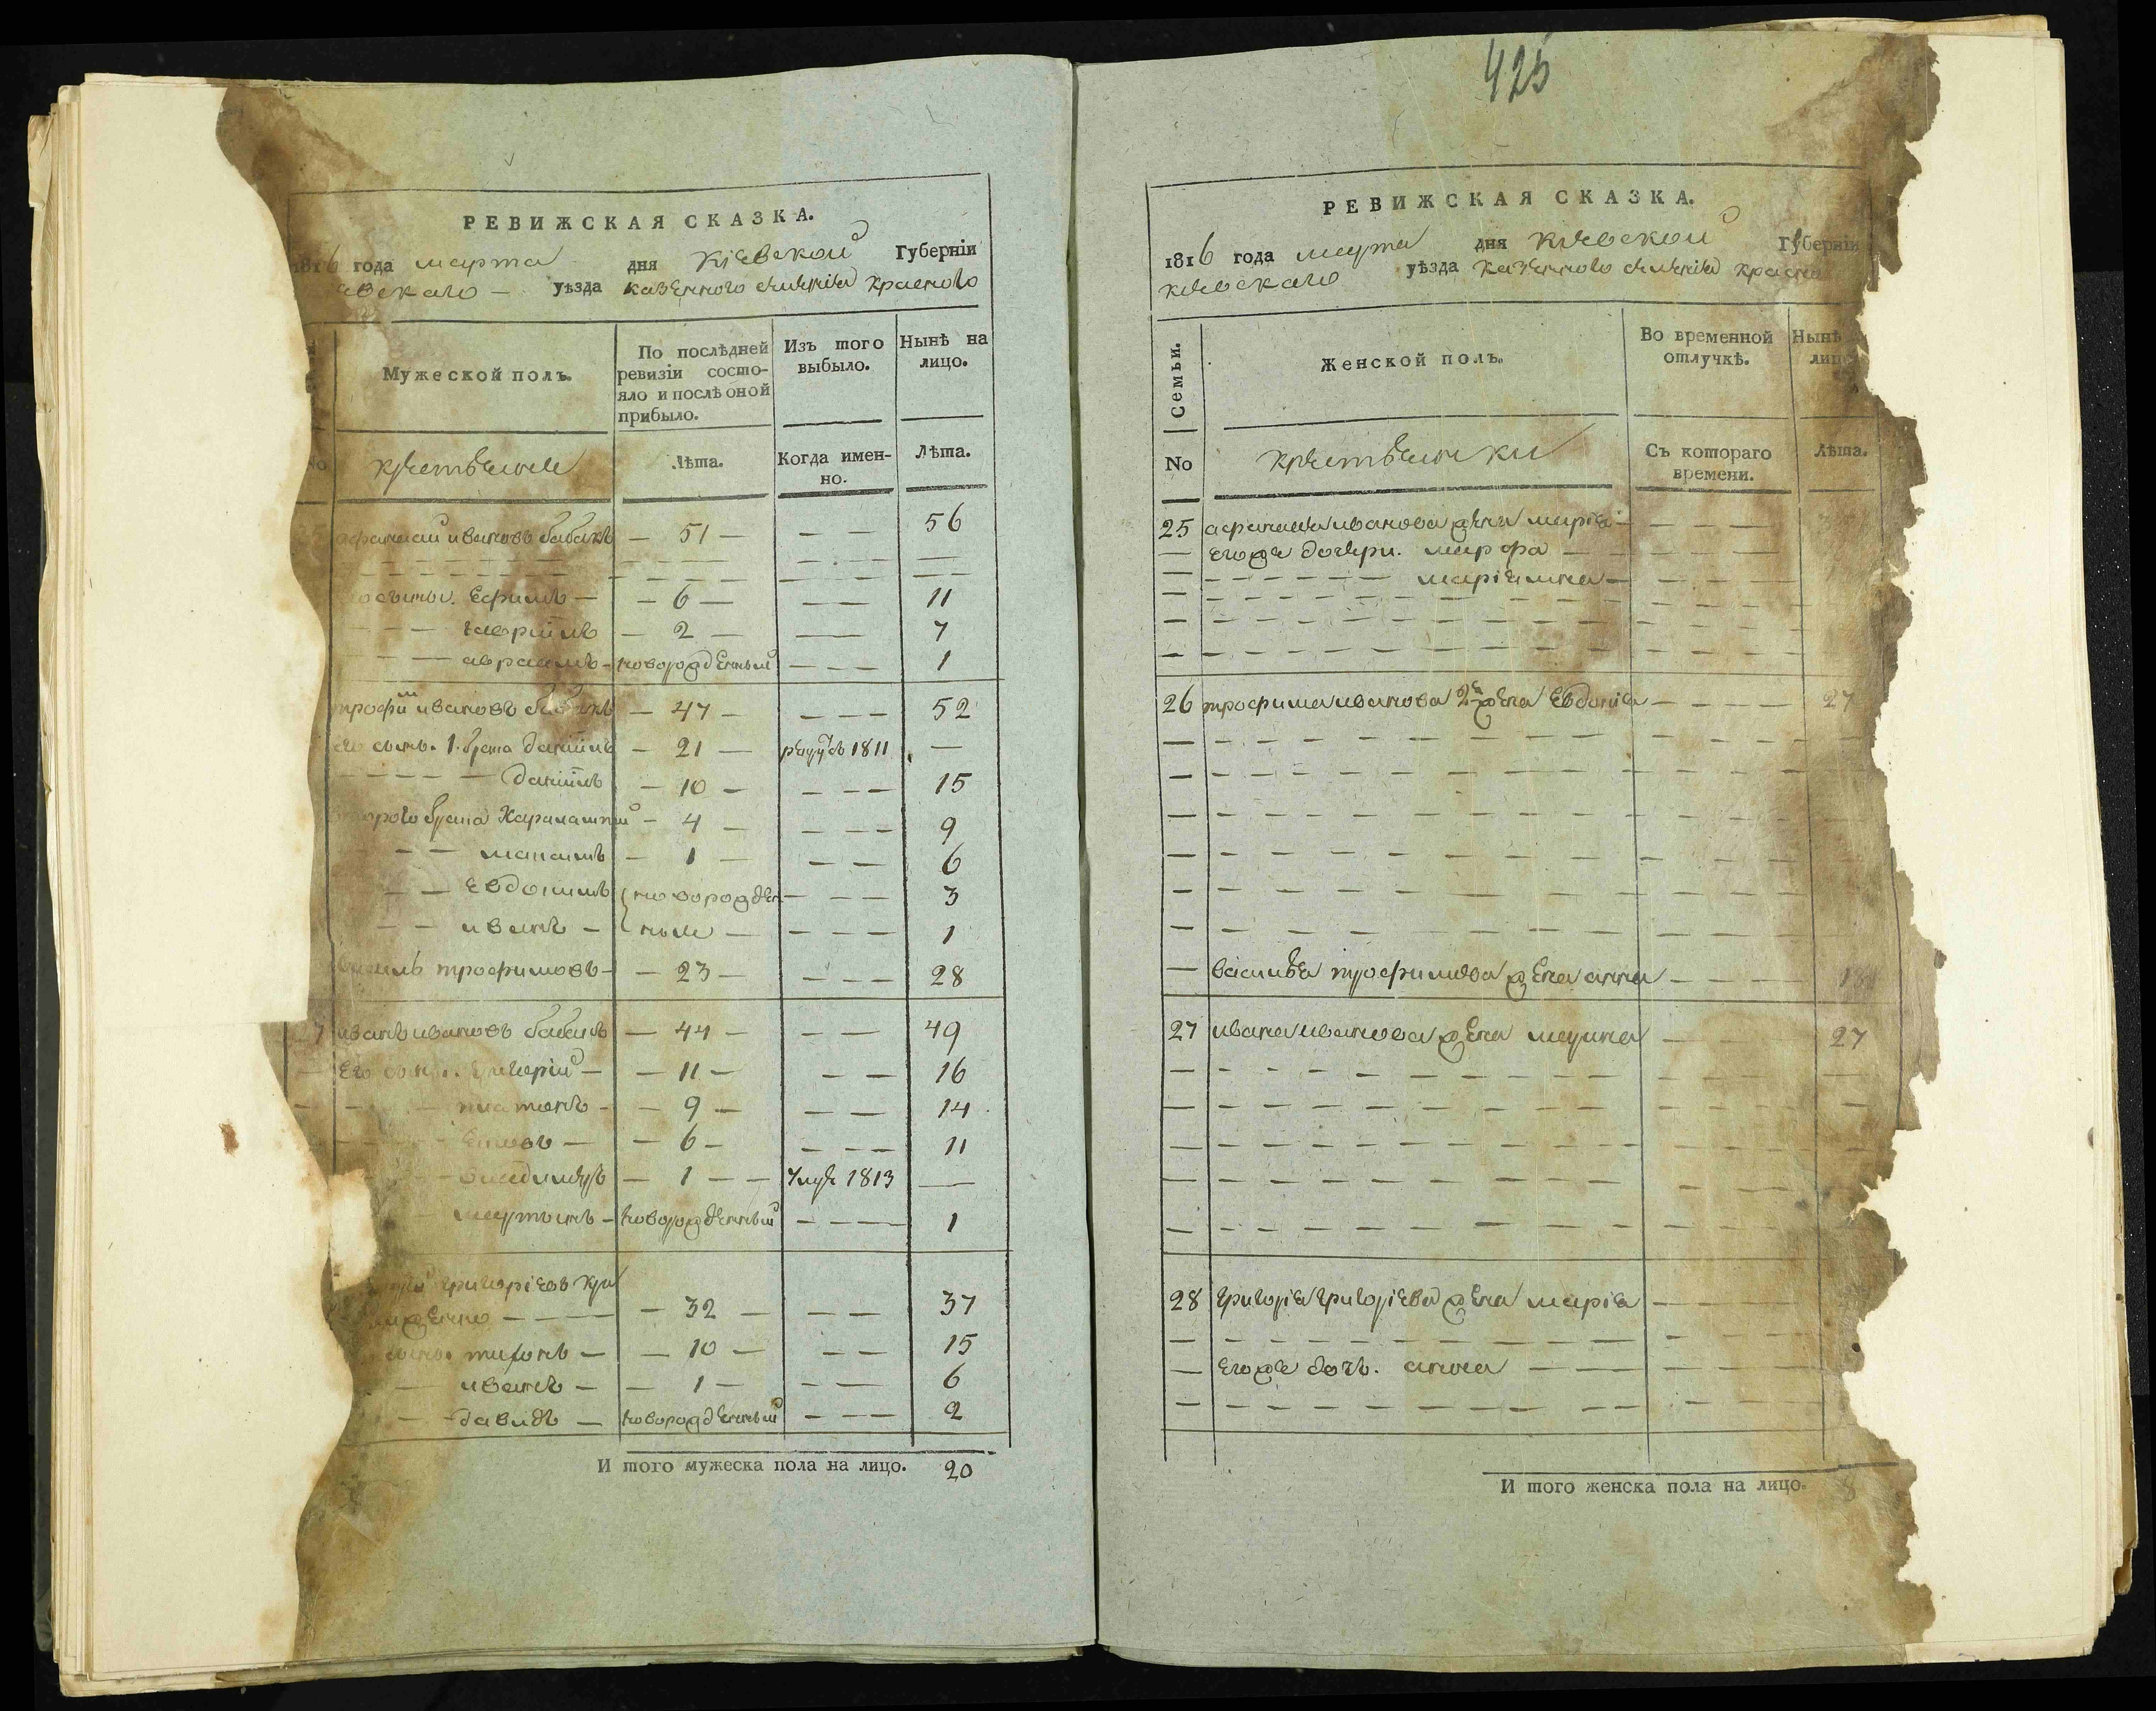 425
РЕВИЖСКАЯ СКАЗКА.
1816 года марта дня Кіевской Губерніи
евскаго уѣзда казенного селенія Красного
Мужеской полъ.
По послѣдней ревизіи состо-
яло и послѣ оной
прибыло.
Изъ того
выбыло.
Нынѣ на
лицо.
No
крестьяне
Лѣта.
Когда имен-
но.
Лѣта.
25 афанасий ивановъ бабакъ — 51 — — — 56
сыны. Ефимъ — — 6 — — — 11
гавриилъ — 2 — — — 7
авраамъ — новорожденный — — — 1
трофим ивановъ бабакъ — 47 — — — — 52
его сынъ. 1. брата даниилъ — 21 — 1811 —
даниилъ — 10 — — — — 15
второго брата Харлампий — 4 — — — — 9
— 1 — — — 6
Евдокимъ новорожден — — — 3
иванъ — ные — — — — 1
василь трофимовъ — — 23 — — — — 28
27 иванъ ивановъ бабакъ — 44 — — — 49
его сыны. григорій — — 11 — — — 16
платонъ — — 9 — — — 14
— 6 — — — — 11
владимиръ — 1 — — 1813 —
мартынъ — новорожденный — — — 1
григоріевъ
— 32 — — — 37
сынъ. тихонъ — — 10 — — — 15
иванъ — — 1 — — — 6
давидъ — новорожденный — — — 2
И того мужеска пола на лицо. 20
РЕВИЖСКАЯ СКАЗКА.
1816 года марта дня Кіевской Губерніи
кіевскаго уѣзда казенного селенія красно
Семьи.
Женской полъ.
Во временной
отлучкѣ.
Нынѣ
лицо
No
крестьянки
Съ котораго
времени.
Лѣта.
25 афанасия иванова жена марія — — — —
его же дочери. марфа —
маріамна —
26 трофима иванова 2я жена Евдокія — — — — 27
— василья трофимова жена анна — — — — 18
27 ивана иванова жена марина — — — 27
28 григорія григоріева жена марія — — — —
— его же дочь. анна — — —
И того женска пола на лицо. 8